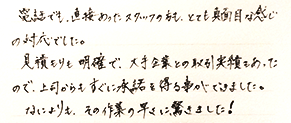 電話でも、直接あったスタッフの方も、とても真面目な感じ
の対応でした。
見積もりも明確で、大手企業との取引実績もあった
ので、上司からもすぐに承諾を得る事ができました。
なによりも、その作業の早さに驚きました!